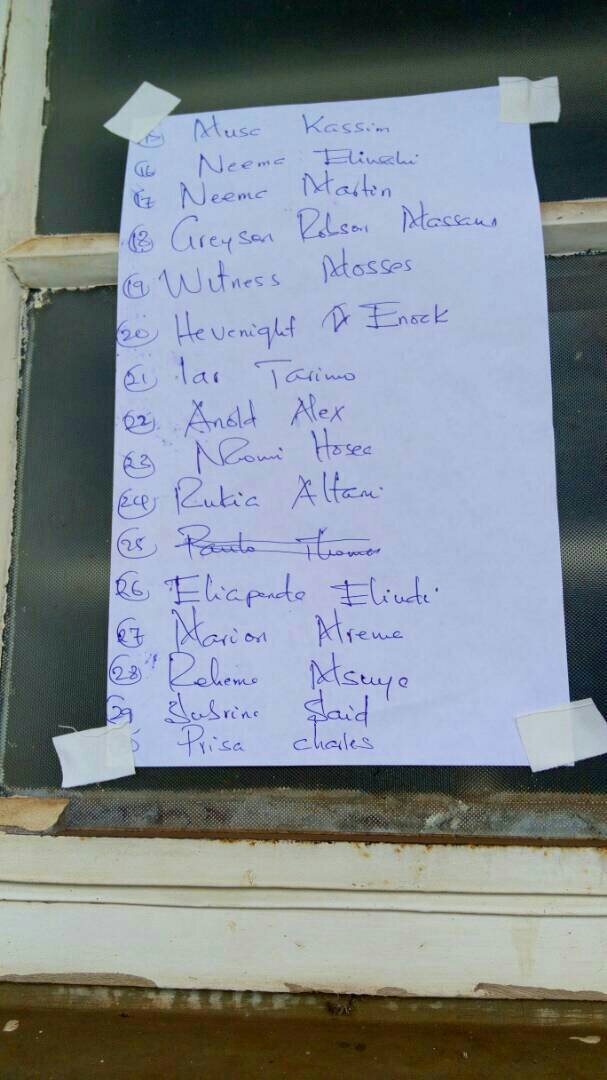 15 Musa Kassim
16 Neema Elinahi
17 Neema Martin
18 Greyson Robson Massawe
19 Witness Mosses
20 Hevenight Enock
21 Tarimo
22 Anold Alex
23 Hosea
24 Rukia Athani
25 Paulo Thomas
26 Eliapenda Eliudi
27 Marion Mrema
28 Rehema Msuya
29 Sabrina Said
Prisa charles